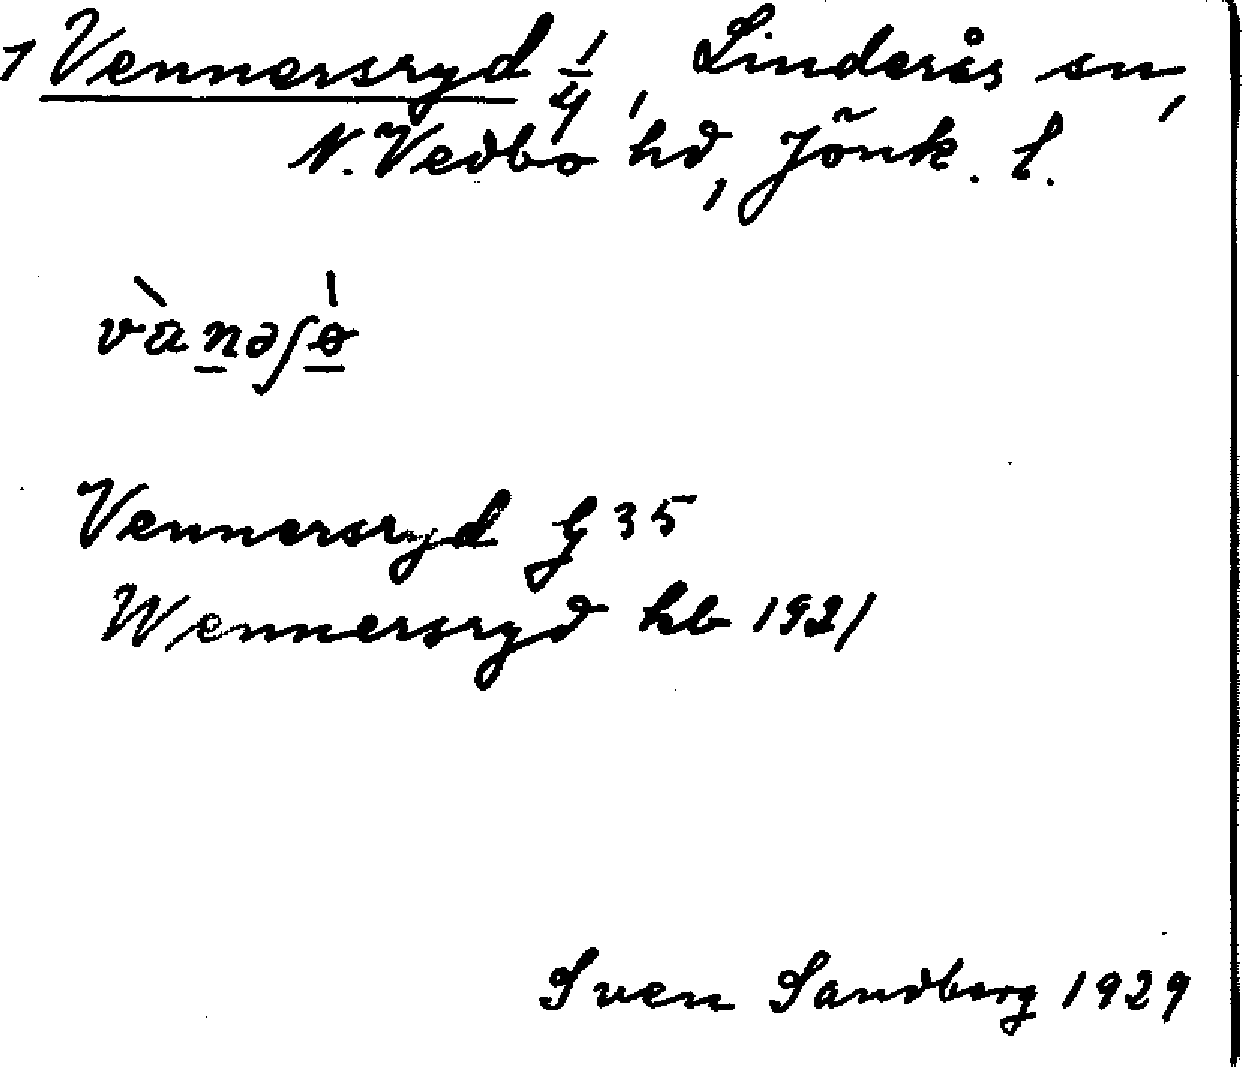 1 Vennersryd 1/4, Linderås sn,
N. Vedbo hd, Jönk. l.
vànəʃɵ̀
Vennersryd G 35
Wennersryd hb 1921
Sven Sandberg 1929